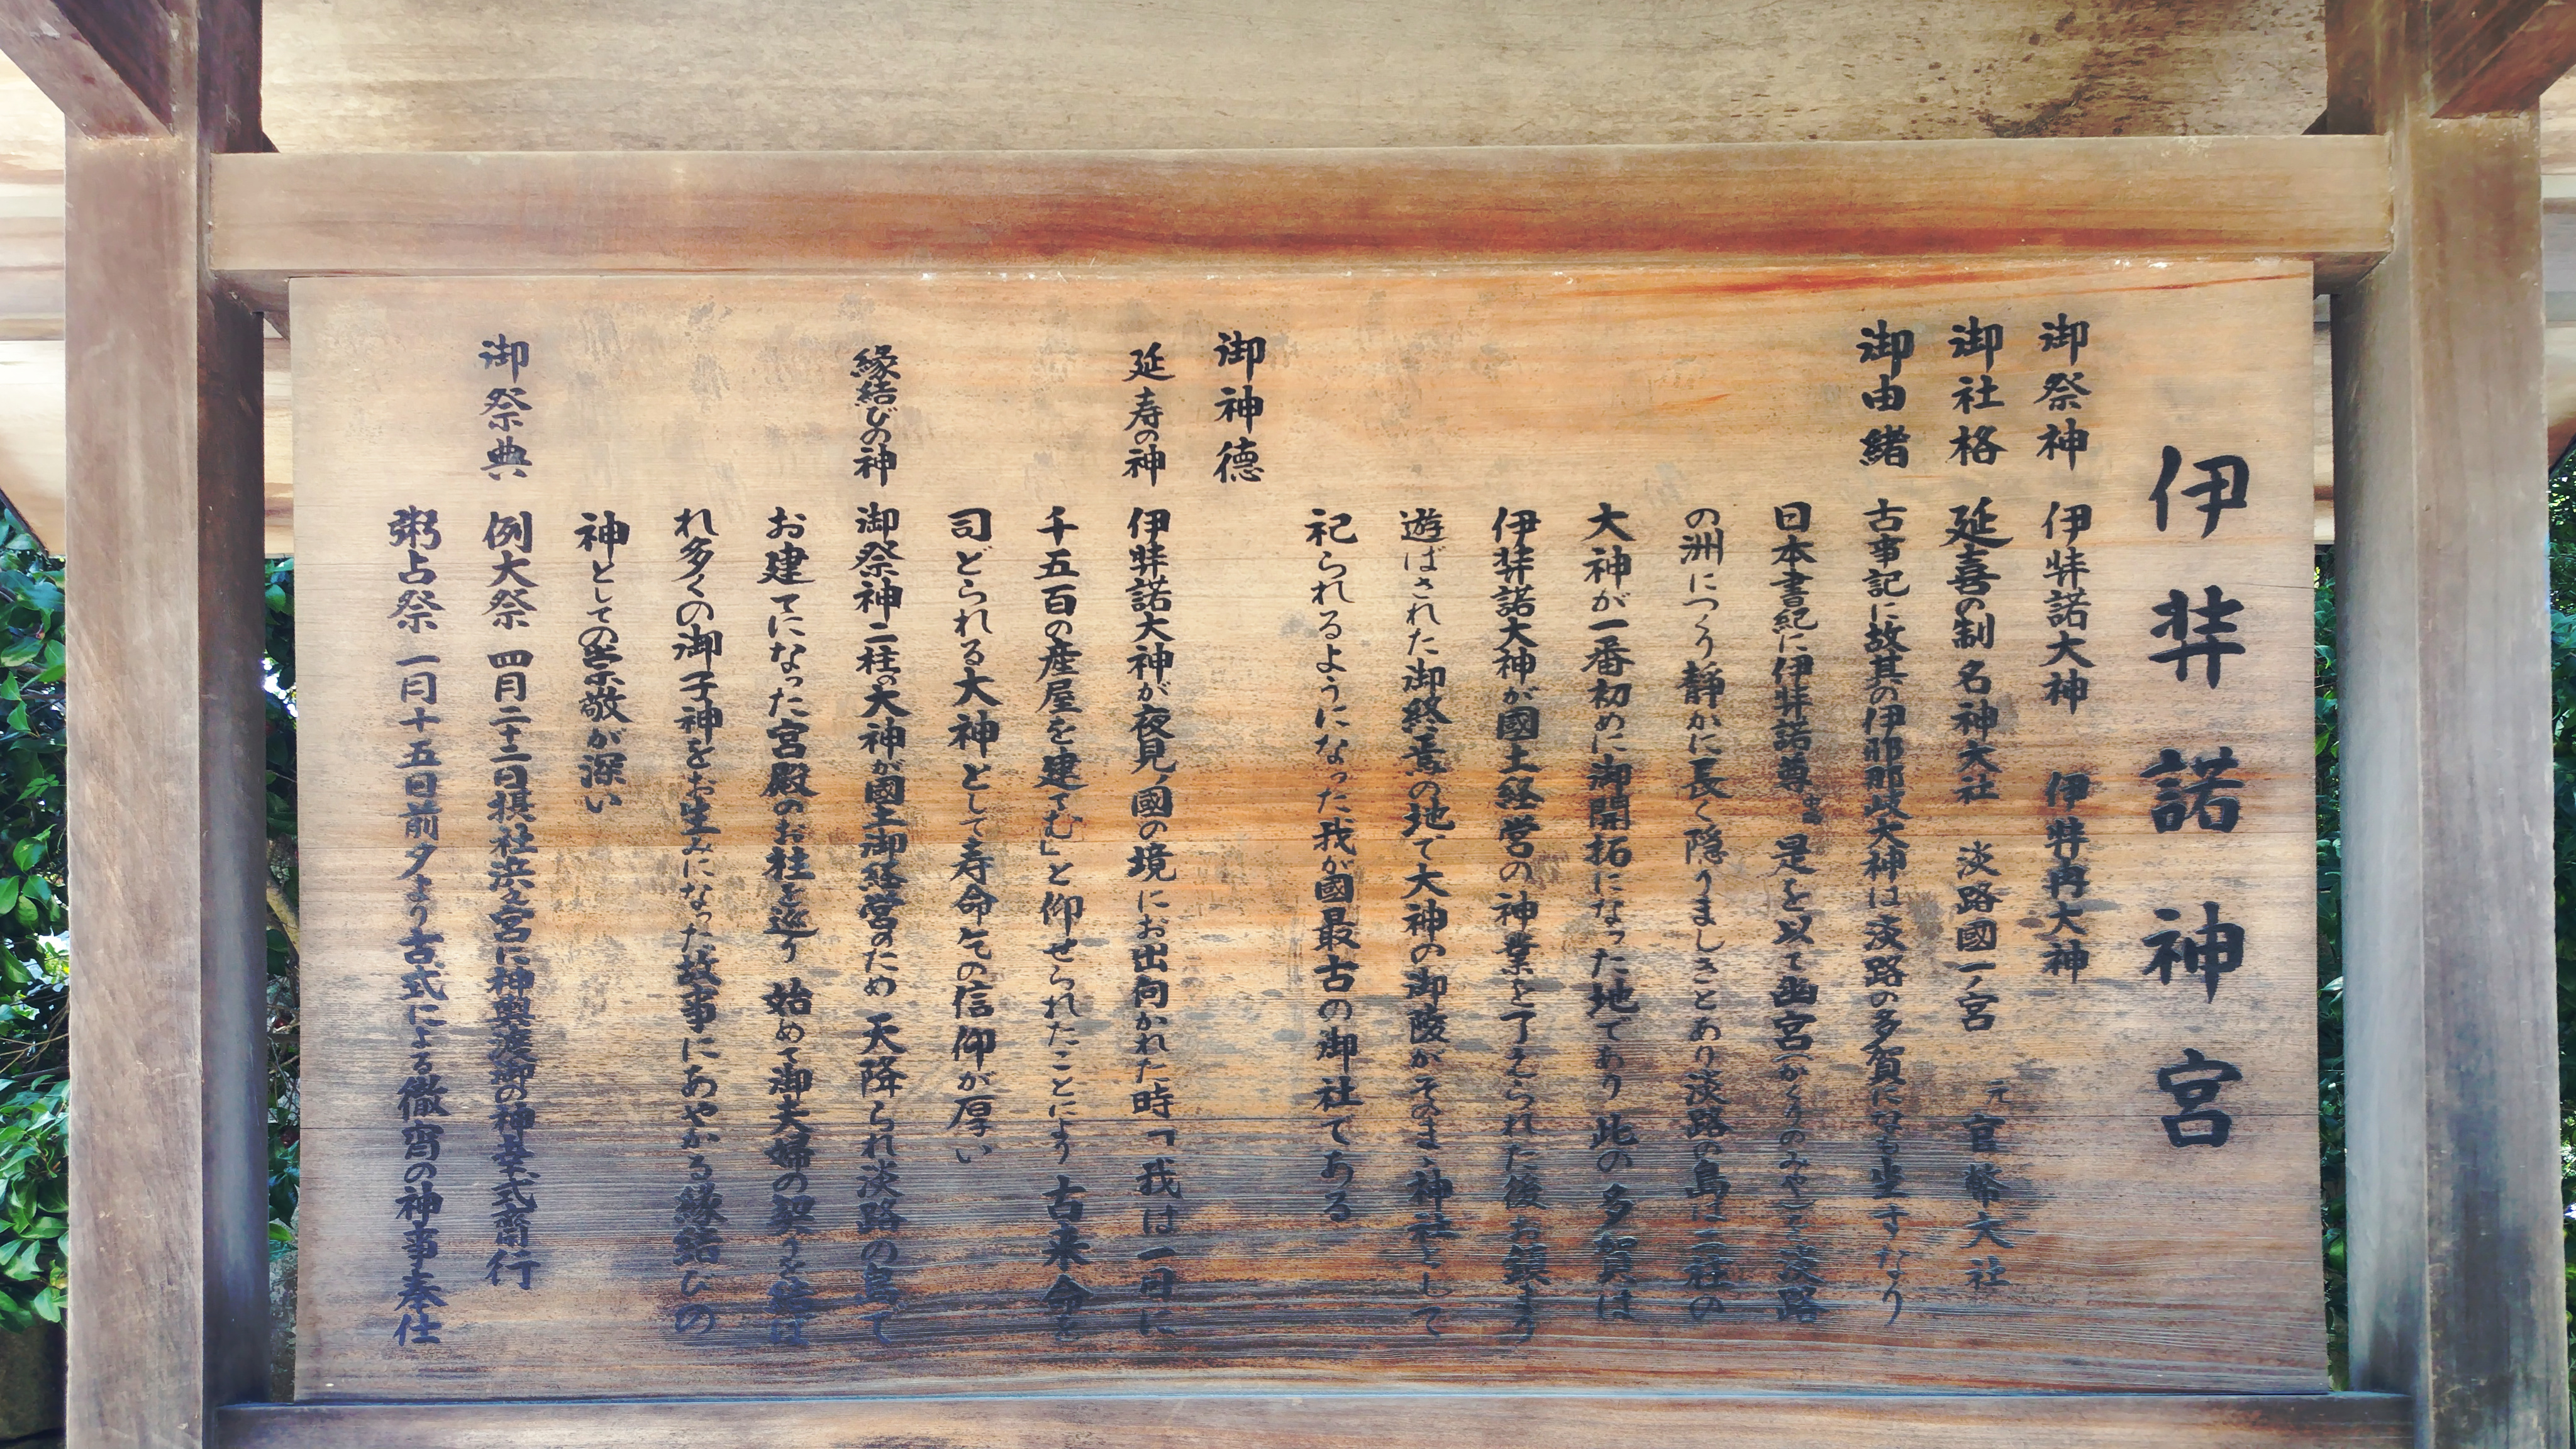 伊弉諾神宮
御祭神 伊弉諾大神 伊弉冉大神
御社格 延喜の制 名神大社 淡路國一ノ宮 元官幣大社
御由緒 古事記に故其の伊耶那岐大神は淡路の多賀になも坐すなり
日本書紀に伊弉諾尊 是を以て幽宮(かくりのみや)を淡路
の洲につくり静かに長く隠りましきとあり淡路の島は二柱の
大神が一番初めに御開拓になった地であり此の多賀は
伊弉諾大神が國土経営の神業を了えられた後お鎮まり
遊ばされた御終焉の地で大神の御陵がそのまゝ神社として
祀られるようになった我が國最古の御社である
御神徳
延寿の神 伊弉諾大神が夜見ノ國の境にお出向かれた時「我は一日に
千五百の産屋を建てむ」と仰せられたことにより古来命を
司どられる大神として寿命乞の信仰が厚い
縁結びの神 御祭神二柱の大神が國土御経営のため天降られ淡路の島で
お建てになった宮殿のお柱を巡り始めて御夫婦の契りを結ば
れ多くの御子神をお生みになった故事にあやかる縁結びの
神としての崇敬が深い
御祭典 例大祭 四月二十二日摂社浜之宮に神輿渡御の神幸式齋行
粥占祭 一月十五日前夕より古式による徹宵の神事奉仕